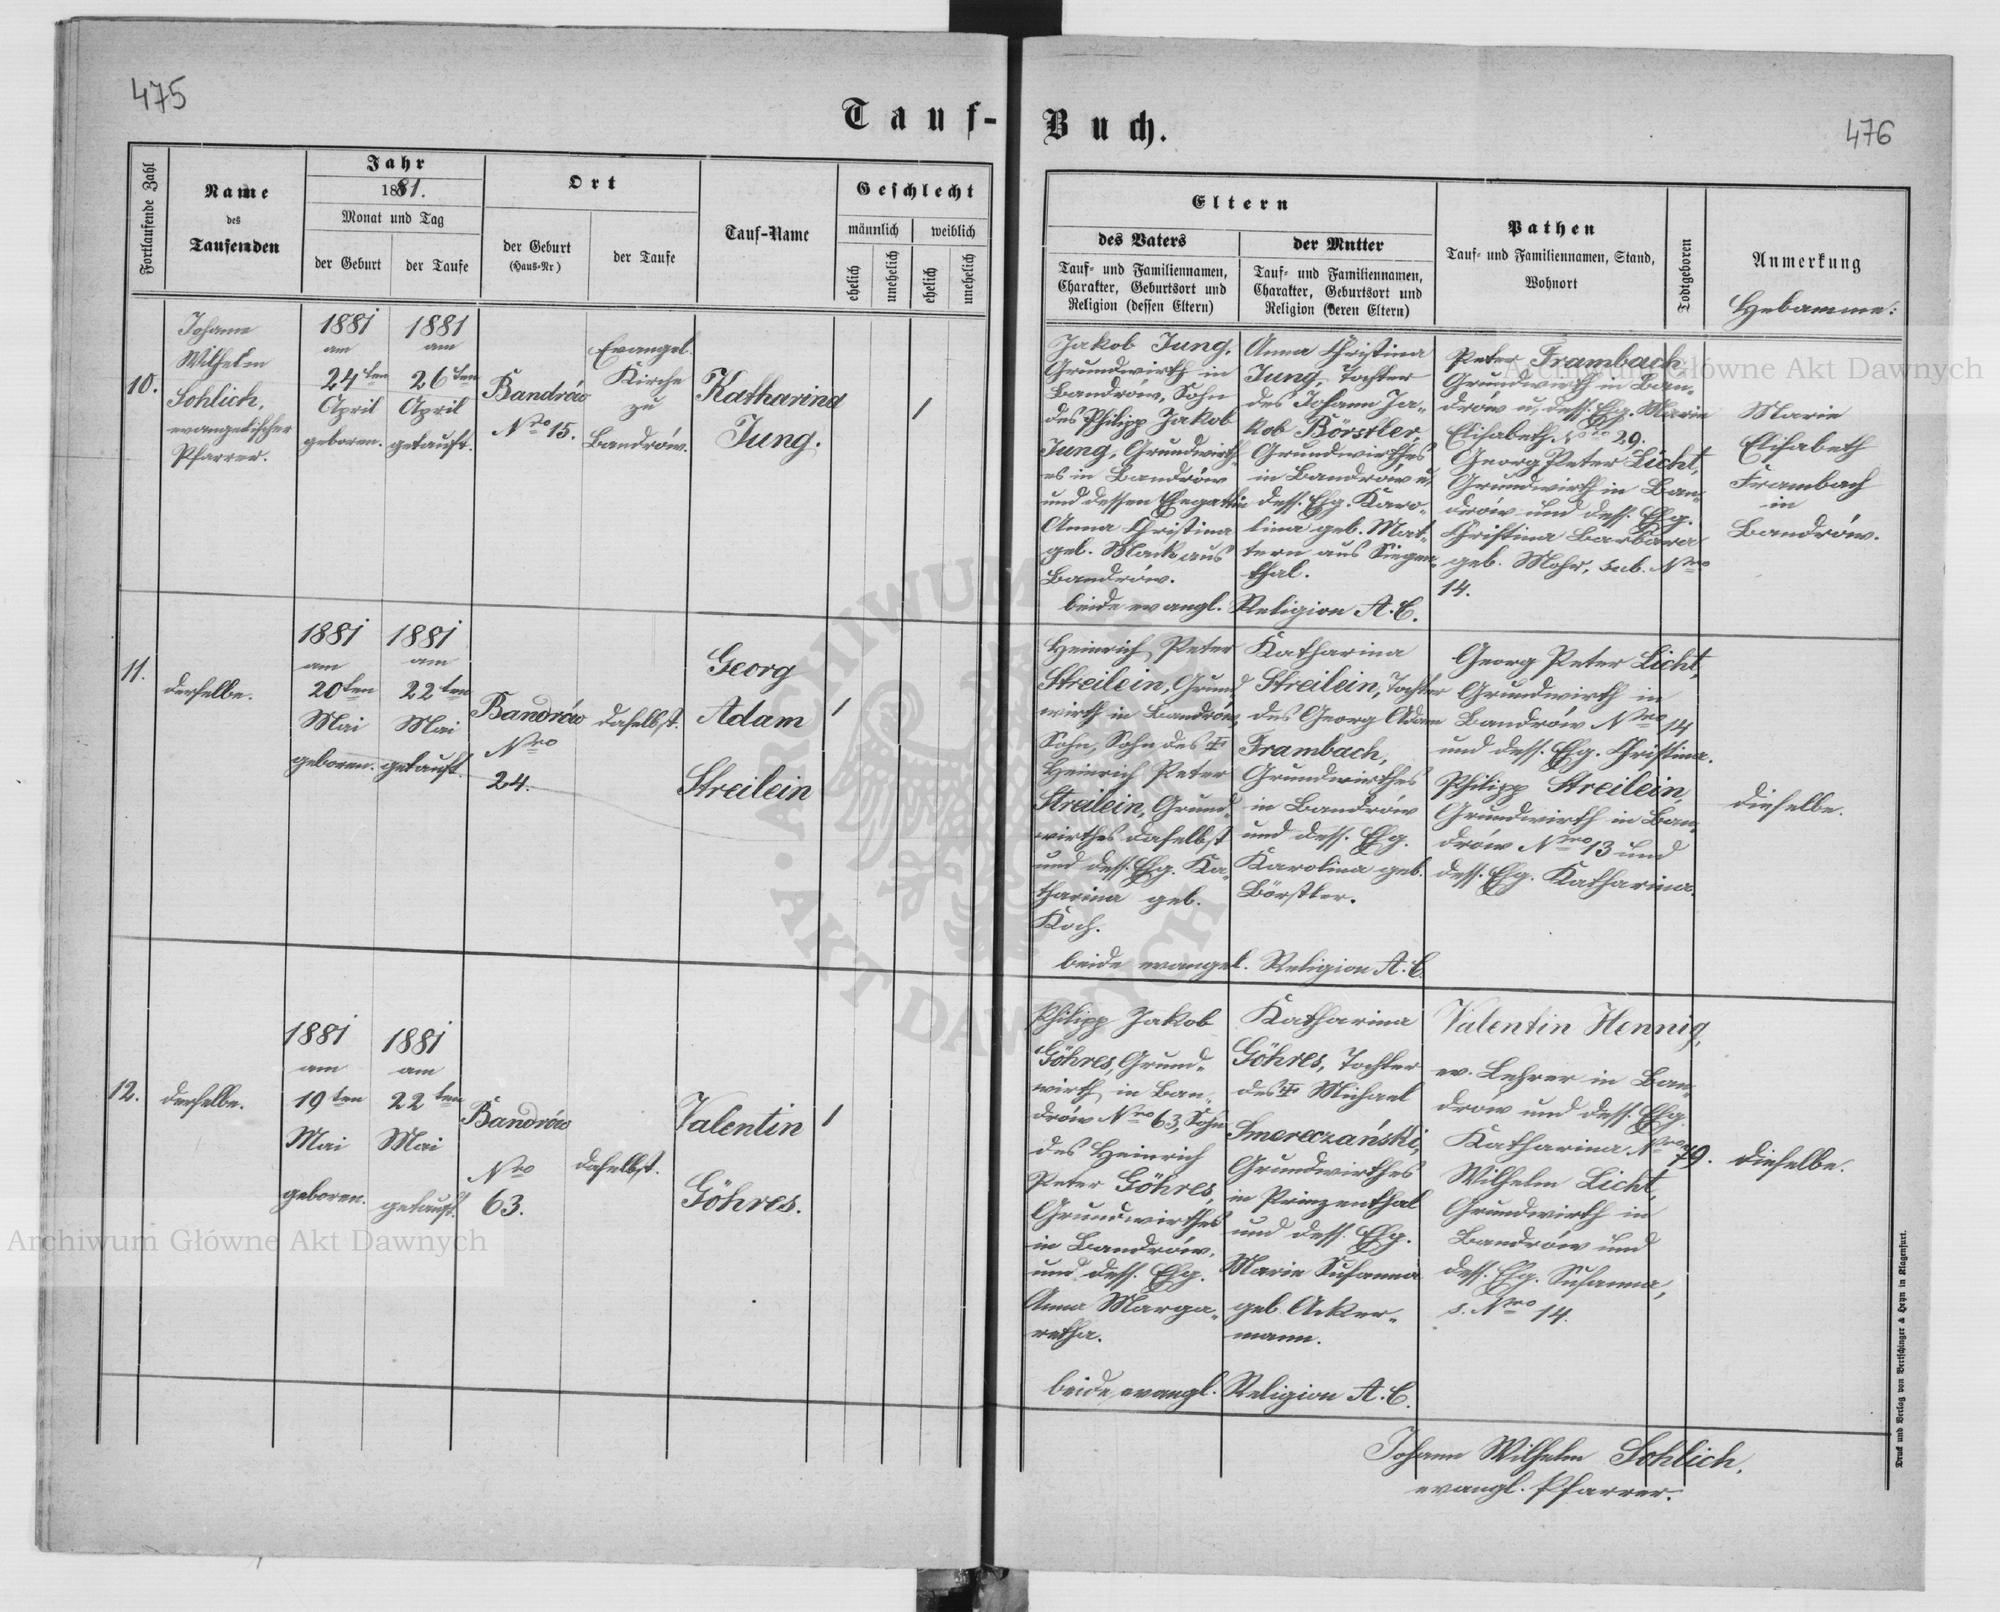 475
476
Tauf-Buch.
Fortlaufende Zahl
Name
des
Taufenden
Jahr
1881.
Monat und Tag
der Geburt
der Taufe
Ort
der Geburt
(Haus-Nr)
der Taufe
Tauf-Name
Geschlecht
männlich
weiblich
ehelich
unehelich
ehelich
unehelich
Eltern
des Vaters
Tauf- und Familiennamen,
Charakter, Geburtsort und
Religion (dessen Eltern)
der Mutter
Tauf- und Familiennamen,
Charakter, Geburtsort und
Religion (deren Eltern)
Pathen
Tauf- und Familiennamen, Stand,
Wohnort
Todtgeboren
Anmerkung
Hebamme:
10.
Johann
Wilhelm
Sohlich,
evangelischer
Pfarrer.
1881
am
24ten
April
geboren.
1881
am
26ten
April
getauft.
Bandrów
Nro 15.
Evangel.
Kirche
zu
Bandrów.
Katharina
Jung.
1
Jakob Jung,
Grundwirth in
Bandrów, Sohn
des Philipp Jakob
Jung, Grundwirth-
es in Bandrów
und dessen Ehegattin
Anna Christina
geb. Mack aus
Bandrów.
Anna Christina
Jung, Tochter
des Johann Ja-
kob Börstler,
Grundwirthes
in Bandrów u.
dess. Ehg. Karo-
lina geb. Mat-
tern aus Siegen-
thal.
beide evangl. Religion A. C.
Peter Frambach,
Grundwirth in Ban-
drów u. dess. Ehg. Marie
Elisabeth. Nro 29.
Georg Peter Licht,
Grundwirth in Ban-
drów und dess. Ehg.
Christina Barbara
geb. Mohr, sub. Nro
14.
Marie
Elisabeth
Frambach
in
Bandrów.
11.
derselbe.
1881
am
20ten
Mai
geboren.
1881
am
22ten
Mai
getauft.
Bandrów
Nro
24.
daselbst.
Georg
Adam
Streilein
1
Heinrich Peter
Streilein, Grund
wirth in Bandrów,
Sohn, Sohn des ✝
Heinrich Peter
Streilein, Grund-
wirthes daselbst
und dess. Ehg. Ka-
tharina geb.
Koch.
Katharina
Streilein, Tochter
des Georg Adam
Frambach,
Grundwirthes
in Bandrów
und dess. Ehg.
Karolina geb.
Börstler.
beide evangel. Religion A. C.
Georg Peter Licht,
Grundwirth in
Bandrów Nro 14
und dess. Ehg. Christina.
Philipp Streilein,
Grundwirth in Ban-
drów Nro 13 und
dess. Ehg. Katharina.
dieselbe.
12.
derselbe.
1881
am
19ten
Mai
geboren.
1881
am
22ten
Mai
getauft.
Bandrów
Nro
63.
daselbst.
Valentin
Göhres.
1
Philipp Jakob
Göhres, Grund-
wirth in Ban-
drów Nro 63, Sohn
des Heinrich
Peter Göhres,
Grundwirthes
in Bandrów,
und dess. Ehg.
Anna Marga-
retha.
Katharina
Göhres, Tochter
des ✝ Michael
Smereczański,
Grundwirthes
in Prinzenthal
und dess. Ehg.
Marie Susanna
geb. Acker-
mann.
beide evangl. Religion A. C.
Valentin Hennig,
ev. Lehrer in Ban-
drów und dess. Ehg.
Katharina Nro 79.
Wilhelm Licht,
Grundwirth in
Bandrów und
dess. Ehg. Susanna,
s. Nro 14.
dieselbe.
Johann Wilhelm Sohlich,
evangl. Pfarrer.
Druck und Verlag von Bertschinger & Heyn in Klagenfurt.
Archiwum Główne Akt Dawnych
Archiwum Główne Akt Dawnych
ARCHIWUM
AKT DAWNYCH